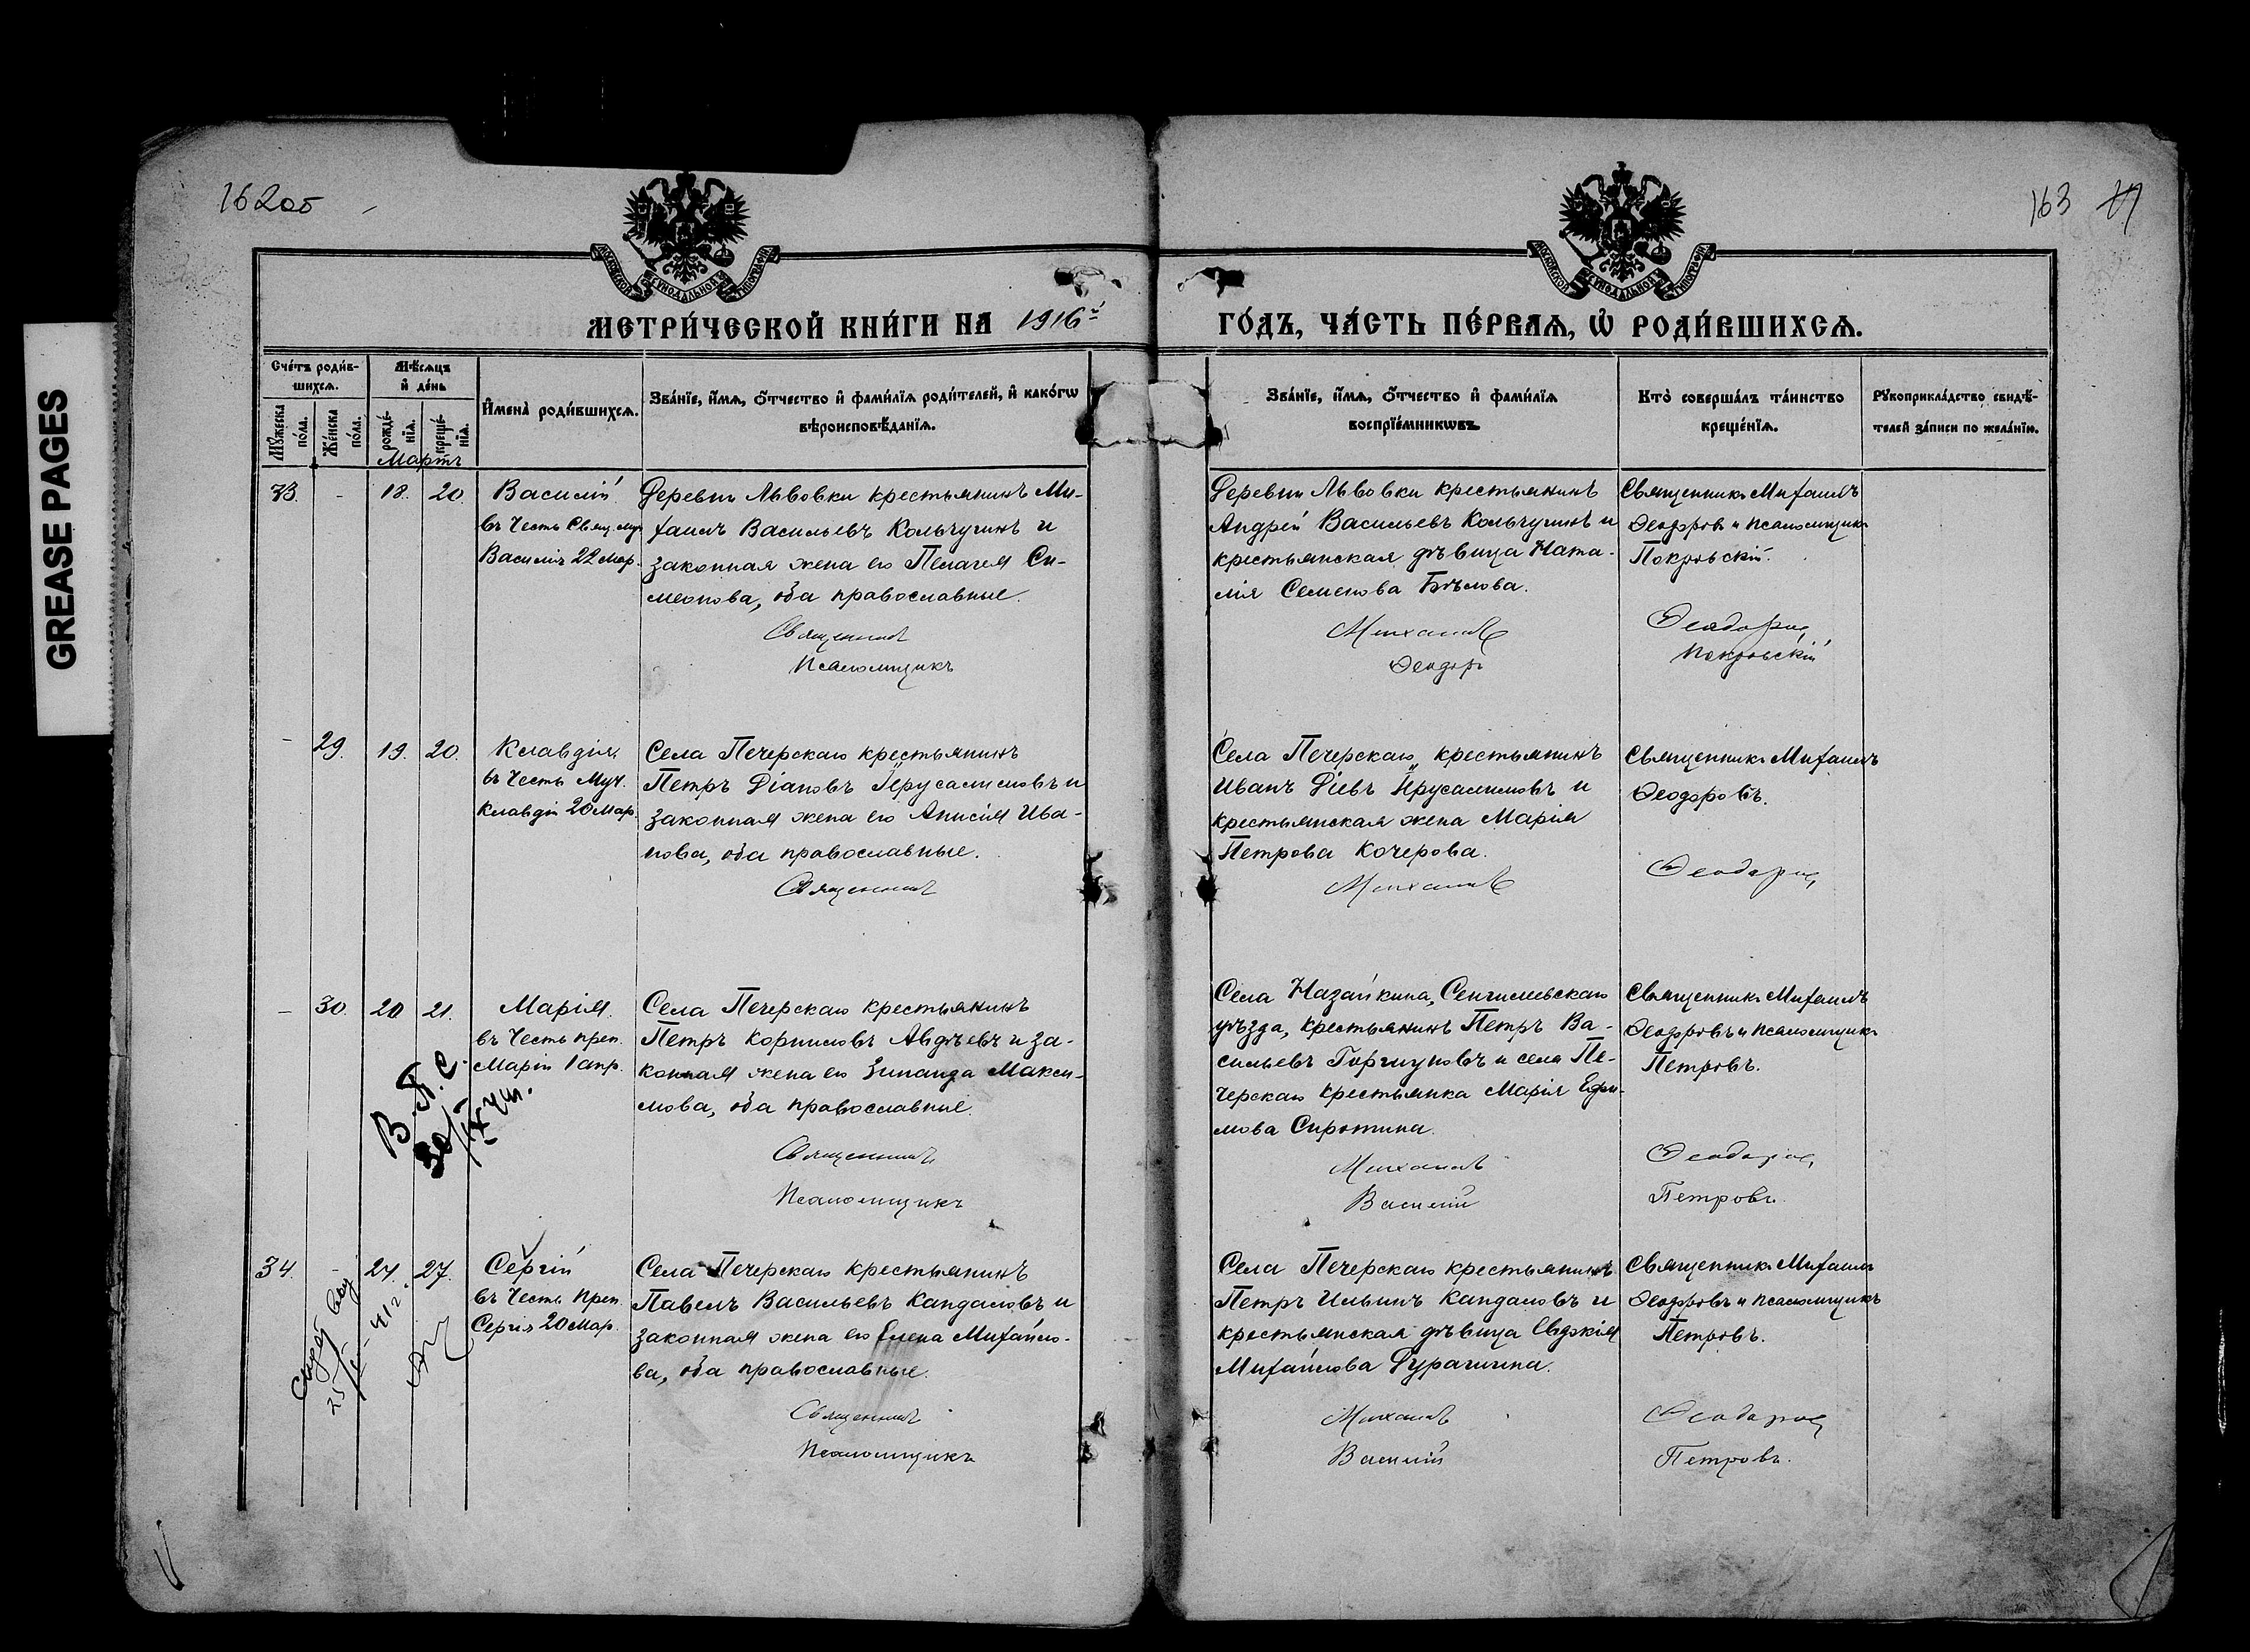 GREASE PAGES
162об
163
МОСКОВСКОЙ СѴНОДАЛЬНОЙ ТИПОГРАФІИ
МОСКОВСКОЙ СѴНОДАЛЬНОЙ ТИПОГРАФІИ
МЕТРИ́ЧЕСКОЙ КНИ́ГИ НА 1916й
ГО́ДЪ, ЧА́СТЬ ПЕ́РВАѦ, Ѡ҆ РОДИ́ВШИХСѦ.
Сче́тъ роди́в-
шихсѧ.
Мꙋ́жеска
по́ла.
Же́нска
по́ла.
Мѣ́сѧцъ
и҆ де́нь
рожде́-
нїѧ.
креще́-
нїѧ.
И҆мена̀ роди́вшихсѧ.
Зва́нїе, и҆́мѧ, ѻ҆́тчество и҆ фами́лїѧ роди́телей, и҆ како́гѡ
вѣроисповѣ́данїѧ.
Зва́нїе, и҆́мѧ, ѻ҆́тчество и҆ фами́лїѧ
воспрїе́мникѡвъ.
Кто̀ соверша́лъ та́инство
креще́нїѧ.
Рꙋкоприкла́дство свидѣ́-
телей за́писи по жела́нїю.
Мартъ
33. - 18. 20. Василій
въ честь Свящ. муч.
Василія 22 мар.
Деревни Львовки крестьянинъ Ми-
хаилъ Васильевъ Кольчугинъ и
законная жена его Пелагея Си-
меонова, оба православные.
Священникъ
Псаломщикъ
Деревни Львовки крестьянинъ
Андрей Васильевъ Кольчугинъ и
крестьянская дѣвица Ната-
лія Семенова Бѣлова.
Михаилъ
Ѳеодоръ
Священникъ Михаилъ
Ѳеодоровъ и псаломщикъ
Покровскій.
Ѳеодоровъ
Покровскій
- 29. 19. 20. Клавдія.
въ честь Муч.
Клавдіи 20 мар.
Села Печерскаго крестьянинъ
Петръ Діановъ Іерусалимовъ и
законная жена его Анисія Ива-
нова, оба православные.
Священникъ
Села Печерскаго крестьянинъ
Иванъ Діевъ Іерусалимовъ и
крестьянская жена Марія
Петрова Кочерова.
Михаилъ
Священникъ Михаилъ
Ѳеодоровъ.
Ѳеодоровъ
- 30. 20 21. Марія.
въ честь преп.
Маріи 1 апр.
В. П. С.
30/IX
Села Печерскаго крестьянинъ
Петръ Корниловъ Авдѣевъ и за-
конная жена его Зинаида Макси-
мова, оба православные.
Священникъ
Псаломщикъ
Села Назайкина, Сенгилеевскаго
уѣзда, крестьянинъ Петръ Ва-
сильевъ Горшуновъ и села Пе-
черскаго крестьянка Марія Ефи-
мова Сиротина.
Михаилъ
Василій
Священникъ Михаилъ
Ѳеодоровъ и псаломщикъ
Петровъ.
Ѳеодоровъ
Петровъ.
34. - 24. 27. Сергій
въ честь Преп.
Сергія 20 мар.
41 г.
Села Печерскаго крестьянинъ
Павелъ Васильевъ Кандаловъ и
законная жена его Елена Михайло-
ва, оба православные.
Священникъ
Псаломщикъ
Села Печерскаго крестьянинъ
Петръ Ильинъ Кандаловъ и
крестьянская дѣвица Евдокія
Михайлова Бурачигина.
Михаилъ
Василій
Священникъ Михаилъ
Ѳеодоровъ и псаломщикъ
Петровъ.
Ѳеодоровъ
Петровъ.